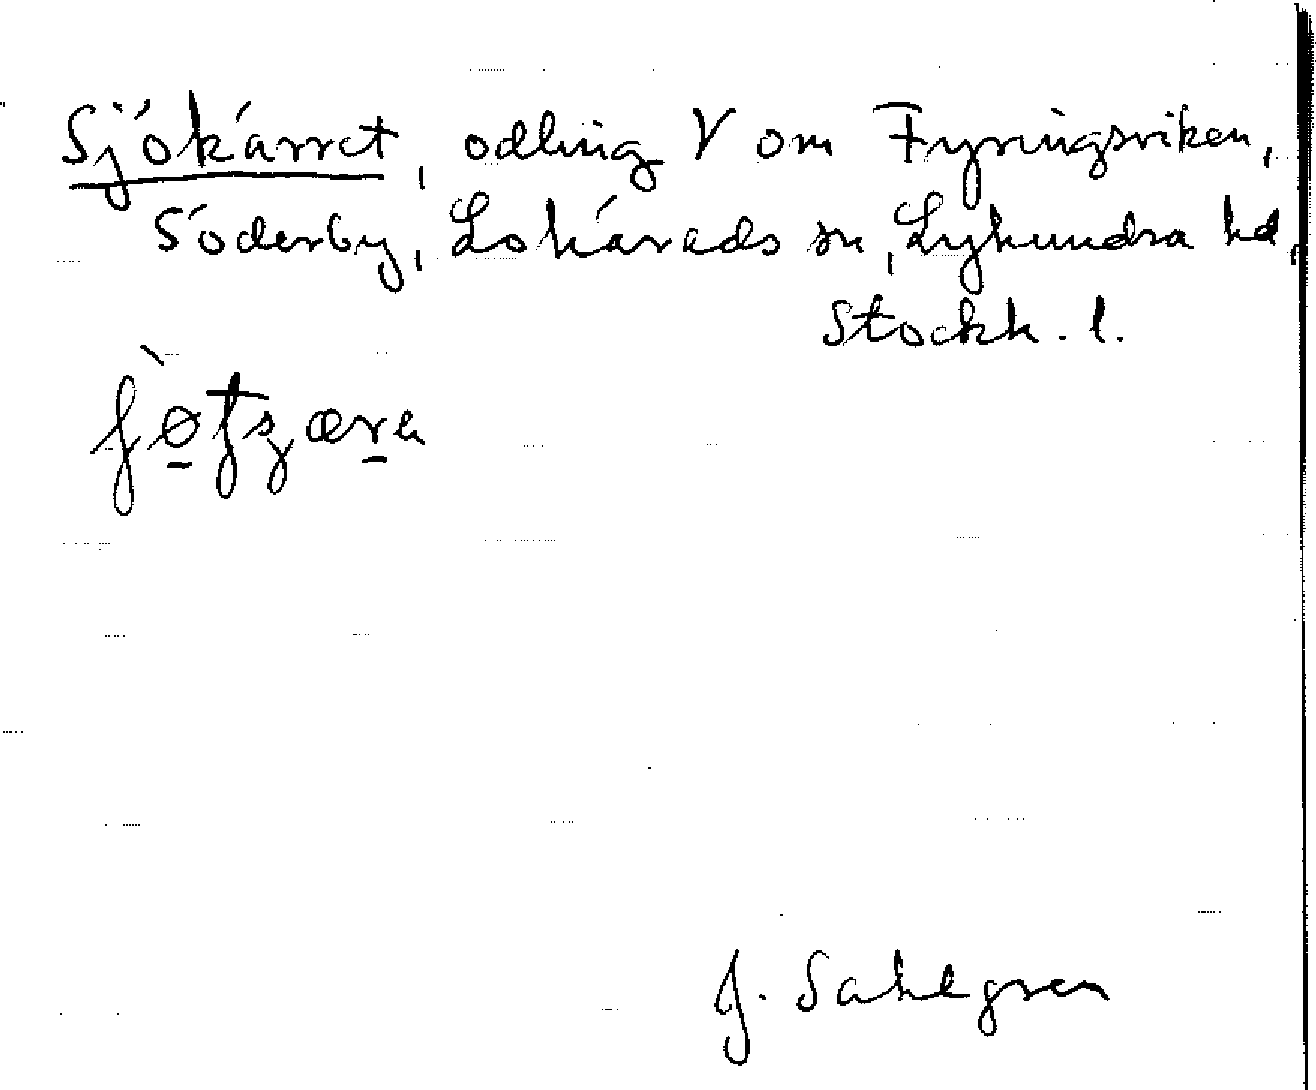 Sjökärret, odling V om Fyringsviken,
Söderby, Lohärads sn, Lyhundra hd,
Stockh. l.
J. Sahlgren